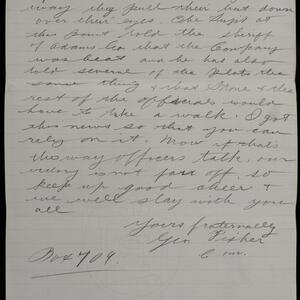 away they pull their hat down
over their eyes. The Supt at
this point told the Sheriff
of Adams Co that the Company
was beat and he has also
told several of the pilots the
same thing & that Stone & the
rest of the officials would
have to take a walk. I got
this news so that you can
rely on it. Now if that's
the way officers talk, our
victory is not far off. so
keep up good cheer &
we will stay with you
all
Yours fraternally
Geo Fisher
Box 709.